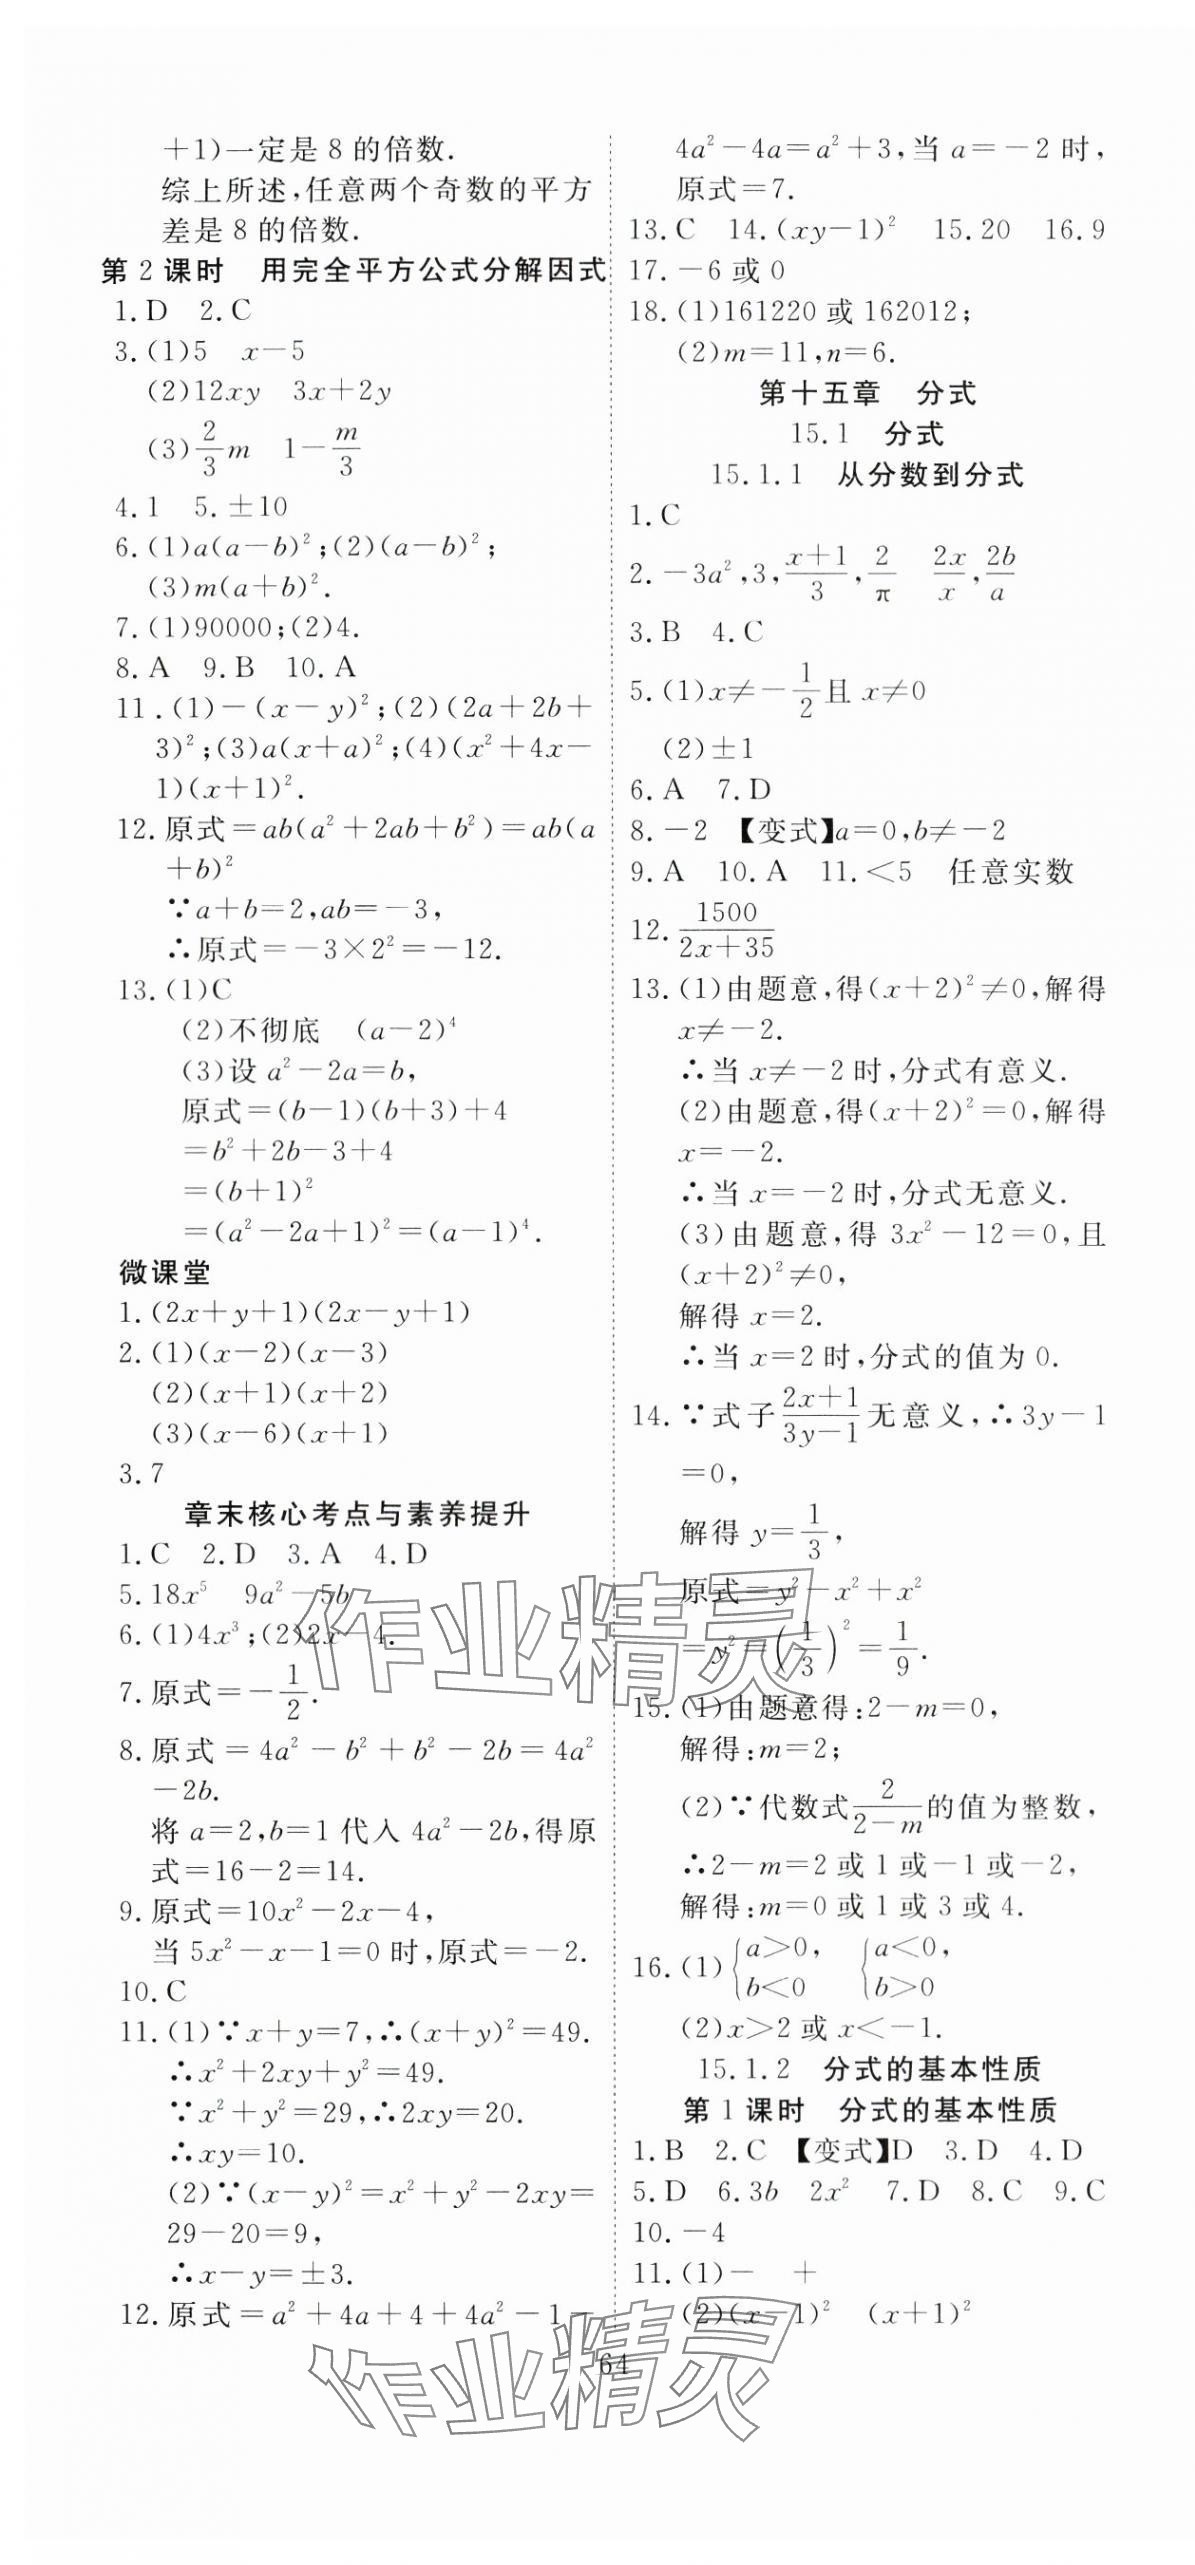 +1)一定是8的倍数.
综上所述,任意两个奇数的平方
差是8的倍数.
第2课时　用完全平方公式分解因式
1.D　2.C
3.(1)5　x−5
(2)12xy　3x+2y
(3)2/3 m　1−m/3
4.1　5.±10
6.(1)a(a−b)²;(2)(a−b)²;
(3)m(a+b)².
7.(1)90000;(2)4.
8.A　9.B　10.A
11.(1)−(x−y)²;(2)(2a+2b+
3)²;(3)a(x+a)²;(4)(x²+4x−
1)(x+1)².
12.原式=ab(a²+2ab+b²)=ab(a
+b)²
∵a+b=2,ab=−3,
∴原式=−3×2²=−12.
13.(1)C
(2)不彻底　(a−2)⁴
(3)设a²−2a=b,
原式=(b−1)(b+3)+4
=b²+2b−3+4
=(b+1)²
=(a²−2a+1)²=(a−1)⁴.
微课堂
1.(2x+y+1)(2x−y+1)
2.(1)(x−2)(x−3)
(2)(x+1)(x+2)
(3)(x−6)(x+1)
3.7
章末核心考点与素养提升
1.C　2.D　3.A　4.D
5.18x⁵　9a²−5b
6.(1)4x³;(2)2x 4.
7.原式=−1/2.
8.原式=4a²−b²+b²−2b=4a²
−2b.
将a=2,b=1代入4a²−2b,得原
式=16−2=14.
9.原式=10x²−2x−4,
当5x²−x−1=0时,原式=−2.
10.C
11.(1)∵x+y=7,∴(x+y)²=49.
∴x²+2xy+y²=49.
∵x²+y²=29,∴2xy=20.
∴xy=10.
(2)∵(x−y)²=x²+y²−2xy=
29−20=9,
∴x−y=±3.
12.原式=a²+4a+4+4a²−1−
4a²−4a=a²+3,当a=−2时,
原式=7.
13.C　14.(xy−1)²　15.20　16.9
17.−6或0
18.(1)161220或162012;
(2)m=11,n=6.
第十五章　分式
15.1　分式
15.1.1　从分数到分式
1.C
2.−3a²,3,(x+1)/3,2/π　2x/x,2b/a
3.B　4.C
5.(1)x≠−1/2且x≠0
(2)±1
6.A　7.D
8.−2　【变式】a=0,b≠−2
9.A　10.A　11.<5　任意实数
12.1500/(2x+35)
13.(1)由题意,得(x+2)²≠0,解得
x≠−2.
∴当x≠−2时,分式有意义.
(2)由题意,得(x+2)²=0,解得
x=−2.
∴当x=−2时,分式无意义.
(3)由题意,得3x²−12=0,且
(x+2)²≠0,
解得x=2.
∴当x=2时,分式的值为0.
14.∵式子(2x+1)/(3y−1)无意义,∴3y−1
=0,
解得y=1/3,
原式=y²−x²+x²
=y²=(1/3)²=1/9.
15.(1)由题意得:2−m=0,
解得:m=2;
(2)∵代数式2/(2−m)的值为整数,
∴2−m=2或1或−1或−2,
解得:m=0或1或3或4.
16.(1){a>0,b<0　{a<0,b>0
(2)x>2或x<−1.
15.1.2　分式的基本性质
第1课时　分式的基本性质
1.B　2.C　【变式】D　3.D　4.D
5.D　6.3b　2x²　7.D　8.C　9.C
10.−4
11.(1)−　+
(2)(x−1)²　(x+1)²
64
作业精灵
作业精灵